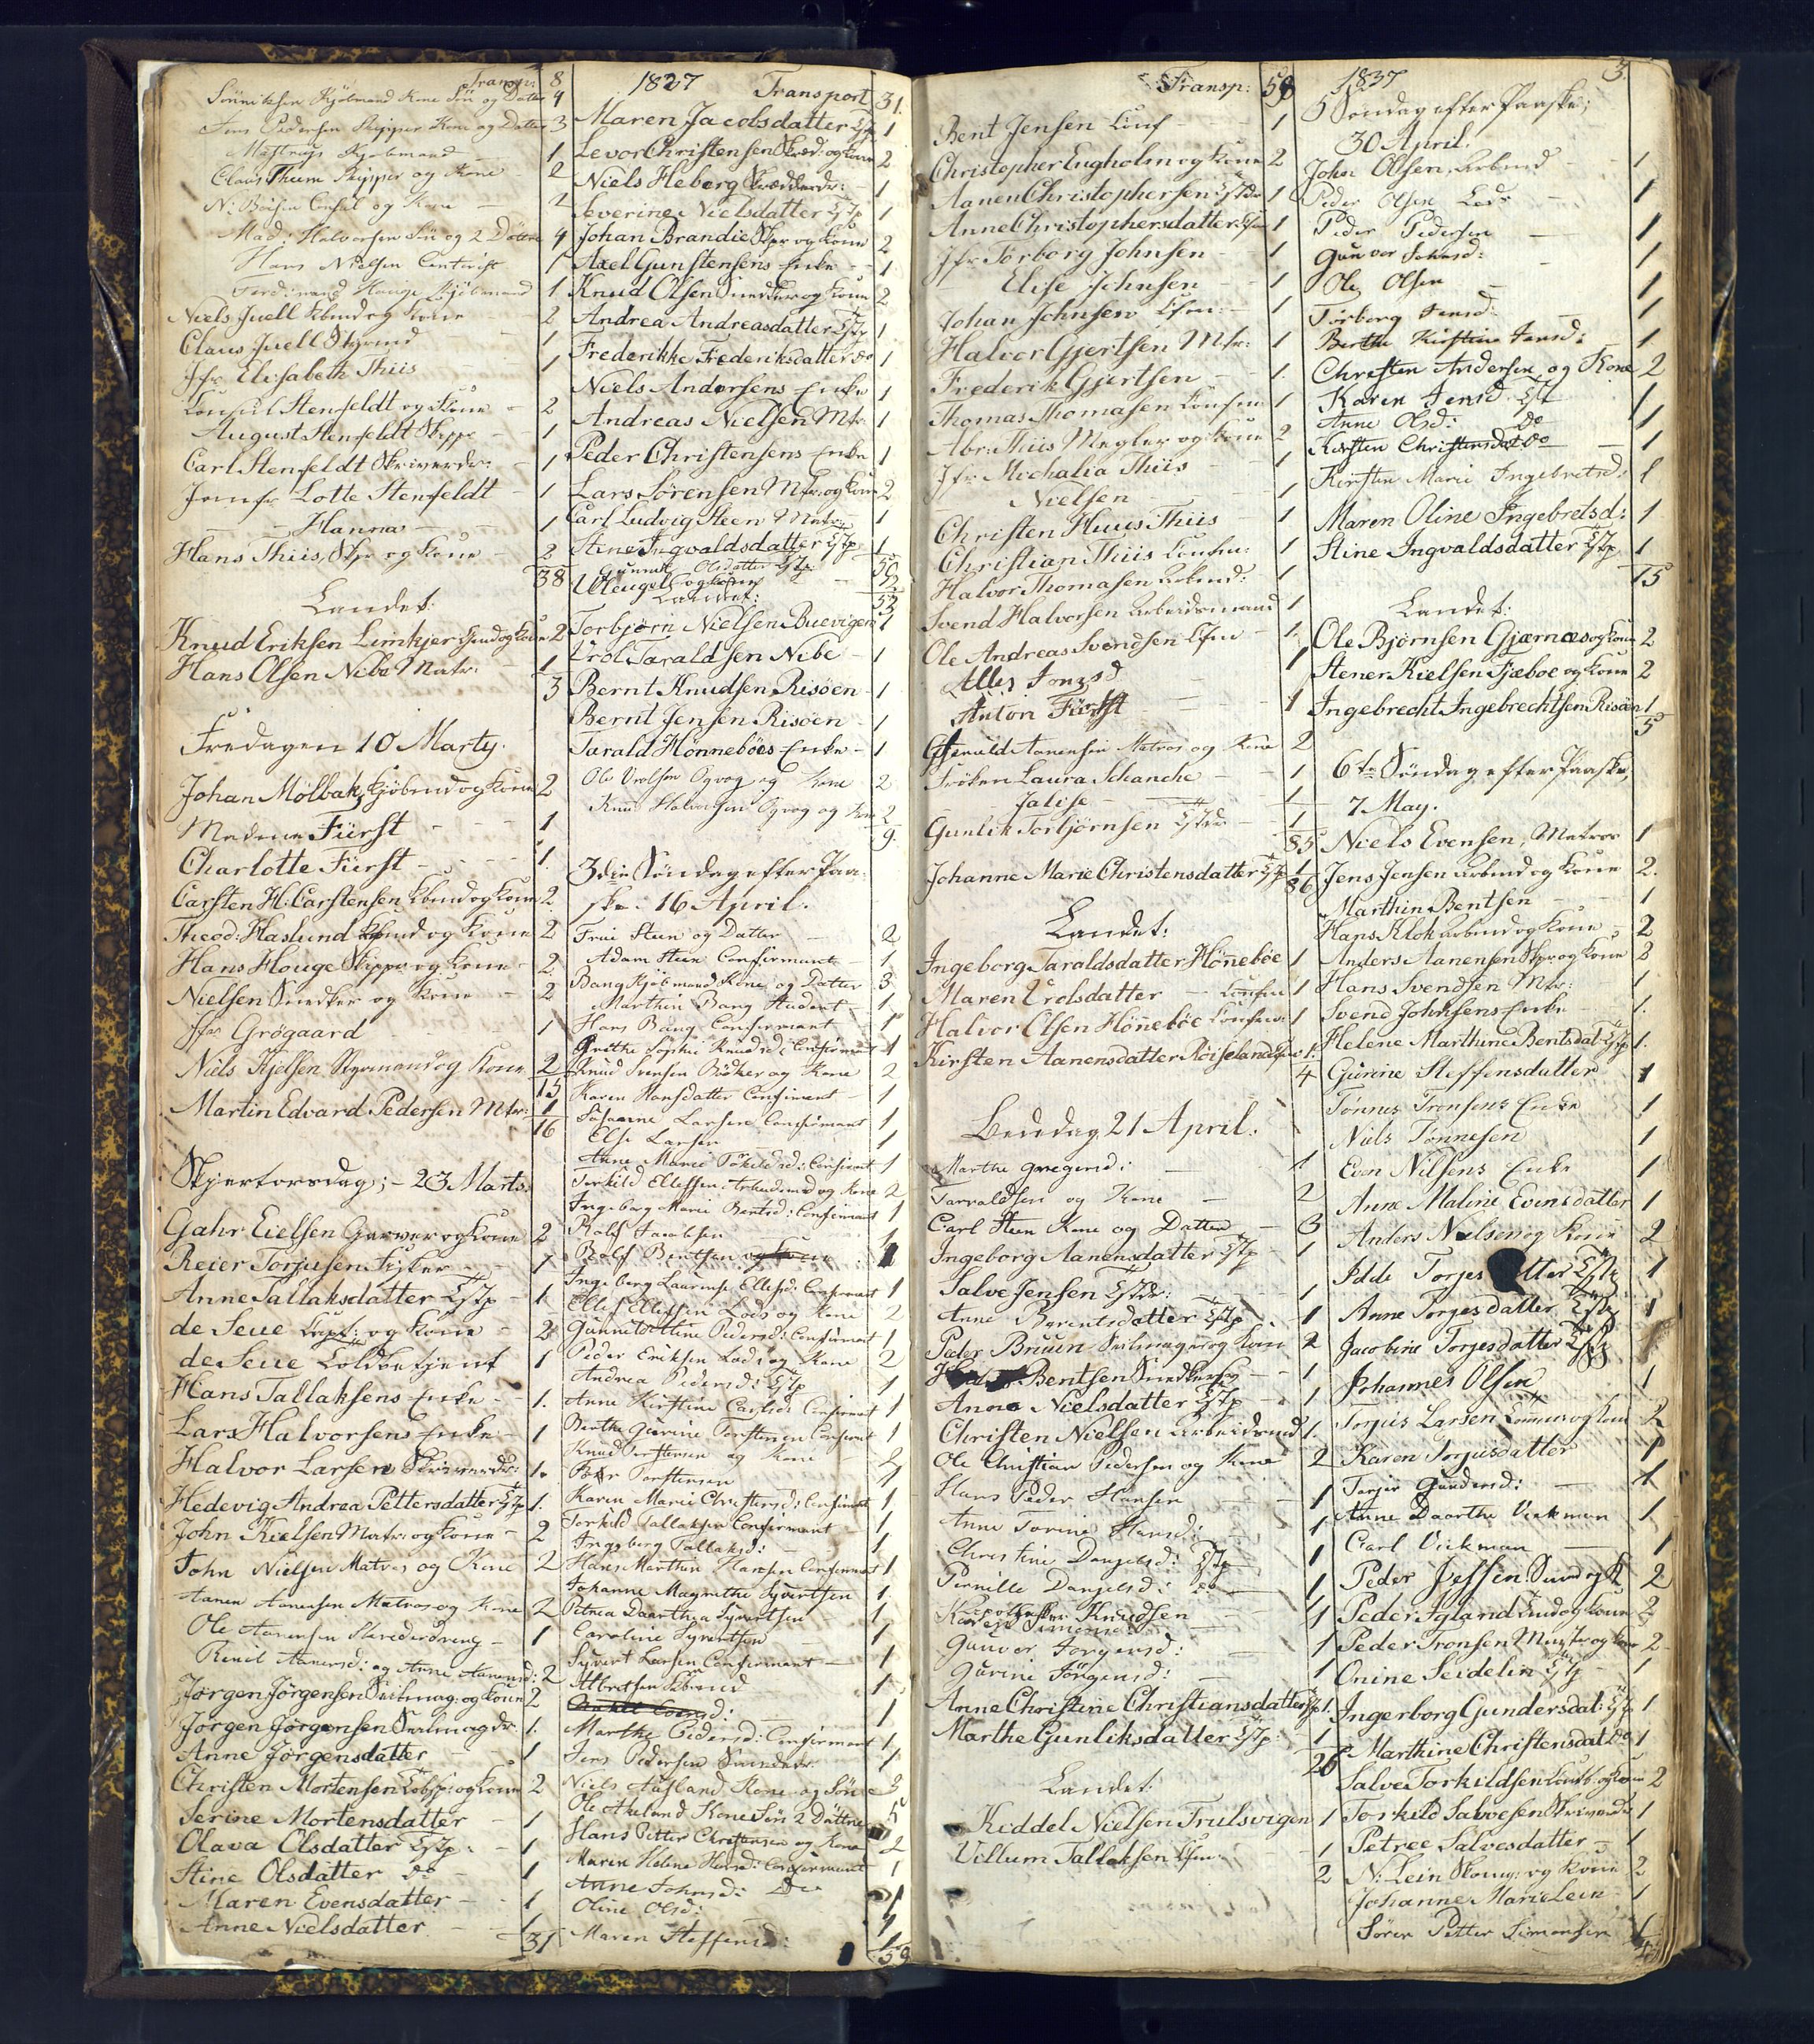 Transp: 8
Sönniksen Kjøbmand Kone Sön og Datter 4
Jens Pedersen Skipper Kone og Datter 3
Kjøbmand 1
Claus Thum Skipper og Kone 2
N: Boisen Consul og Kone 2
Mad: Halvorsen Sön og 2 Döttre 4
Hans Nielsen 1
Ferdinand Houge Kjöbmand 1
Niels Juell Kbmd og Kone 2
Claus Juell Styrmd 1
Jfr. Elisabeth Thiis 1
Consul Stenfeldt og Kone 2
August Stenfeldt Skippr 1
Carl Stenfeldt Skriverdr: 1
Jomfr Lotte Stenfeldt 1
— Hanna — 1
Hans Thiis, Skpr og Kone 2
38
Landet:
Knud Eriksen Limkjer Lsmd og Kone 2
Hans Olsen Nibe Matr: 1
3
Fredagen 10 Marty.
Johan Molbak, Kjöbmd og Kone 2
Madame Fürst 1
Charlotte Fürst 1.
Carsten H: Carstensen Kbmd og Kone 2
Theod: Haslund Kbmd og Kone 2
Hans Houge Skippr og Kone 2
Nielsen Snedker og Kone 2
Jfr Grögaard 1
Niels Kjelsen Styrmand og Kone 2
15
Martin Edvard Pedersen Mtr: 1
16
Skjertorsdag; - 23 Marts.
Gahr Eielsen Garver og Kone 2
Reier Torjusen Fisker 1
Anne Tallaksdatter Tjtp 1
de Seue Capt: og Kone 2
de Seue Toldbetjent 1
Hans Tallaksens Enke 1.
Lars Halvorsens Enke 1
Halvor Larsen Skriverdr: 1.
Hedevig Andrea Pettersdatter Tjtp 1.
John Kielsen Matr: og Kone 2
John Nielsen Matros og Kone 2
Aanen Aanensen Matros og Kone 2
Ole Aanensen Skrederdreng 1
Renil Aanensd: og Anne Aanensd: 2
Jörgen Jörgensen Seilmag: og Kone 2
Jörgen Jörgensen Seilmagdr: 1.
Anne Jörgensdatter 1
Christen Mortensen og Kone 2
Serine Mortensdatter 1
Olava Olsdatter Tjtp: 1
Stine Olsdatter do 1
Maren Evensdatter 1
Anne Nielsdatter 1
31
1837 Transport 31.
Maren Jacobsdatter Tjtp 1
Levor Christensen Skred: og Kone 2
Niels Heborg Skrædderdr: 1
Severine Nielsdatter Tjtp 1
Johan Brandie Skpr og Kone 2
Axel Gunstensens Enke 1
Knud Olsen Snedker og Kone 2
Andrea Andreasdatter Tjtp 1
Frederikke Frederiksdatter do 1
Niels Andersens Enke 1
Andreas Nielsen Mtr: 1
Peder Christensens Enke 1
Lars Sörensen Mtr: og Kone 2
Carl Ludvig Steen Matr: 1
Stine Ingvaldsdatter Tjtp 1
Gunnild Olsdatter Tjtp: 50
Hougel og Kone 2
Landet: 53
Torbjörn Nielsen Buevigen 1
Vrol Taraldsen Nibe 1
Bernt Knudsen, Risöen 1
Bernt Jensen Risöen 1
Tarald Hönneböes Enke 1
Ole Vrolsen Ögvog og Kone 2
Knud Halvorsen Ögvog og Kone 2
9.
3die Söndag efter Paa-
ske: 16 April.
Frue Steen og Datter 2
Adam Steen Confirmant 1
Bang Kjöbmand Kone og Datter 3
Marthin Bang Student 1
Hans Bang Confirmant 1
Grethe Sophie Knudsd: Confirmant 1
Knud Svensen Bödker og Kone 2
Karen Hansdatter Confirmant 1
Susanne Larsen Confirmant 1
Else Larsen 1
Anne Marie Törkeldsd: Confirmant 1
Terkild Ellefsen Arbeidsmd og Kone 2
Ingeborg Marie Berntsd: Confirmant 1
Rolf Jacobsen 1
Rolf Bentsen og Kone 1
Ingeborg Laurense Ellefsd: Confirmant 1
Ellef Ellefsen Lods og Kone 2
Gunnild Stine Pedersd: Confirmant 1
Peder Eriksen Lods og Kone 2
Andrea Pedersd: Tjtp 1
Anne Kirstine Carlsd: Confirmant 1
Berthe Gurine Torstensen Confirmant 1
Knud Torstensen og Kone 2
Peter Torstensen 1
Karen Marie Christensd: Confirmant 1
Torkild Tallaksen Confirmant 1
Ingeborg Tallaksd: 1
Hans Marthin Hansen Confirmant 1
Johanne Magrethe Syvertsen 1
Petrea Daarthea Syvertsen 1
Caroline Syvertsen 1
Syvert Larsen Confirmant 1
Albretsen Kbmnd 1
Marthe Pedersd: Confirmant 1
Jens Pedersen Snedkr: 1
Niels Aasland Kone og Sön 3
Ole Akeland Kone Sön 2 Döttre 5
Hans Petter Christensen og Kone 2
Maren Helene Hansd: Confirmant 1
Anne Johnsd: Do 1
Oline Olsd: 1
Maren Steffensd: 1
59
Transp: 59
Bent Jensen Conf 1
Christopher Engholm og Kone 2
Aanen Christophersen Tjtdr 1
Anne Christophersdatter Cfm 1
Jfr: Torborg Johnsen 1
Elise Johnsen 1
Johan Johnsen Cfm: 1
Halvor Gjertsen Mtr: 1
Frederik Gjertsen 1.
Thomas Thomasen Confm 1
Abr: Thiis Megler og Kone 2
Jfr: Michalia Thiis 1
— Nielsen 1
Christen Huus Thiis 1
Christian Thiis Confm: 1
Halvor Thomasen Arbmd: 1
Svend Halvorsen Arbeidsmand 1
Ole Andreas Svendsen Cfm 1.
Anton Fürst 1
Gjeruld Aanensen Matros og Kone 2
Fröken Laura Schanche 1
Jalise 1
Gunlik Torbjörnsen Tjtdr 1
85
Johanne Marie Christensdatter Tjtp 1
86
Landet:
Ingeborg Taraldsdatter Hönneböe 1
Maren Vrolsdatter Confm 1
Halvor Olsen Hönneböe Confm: 1
Kirsten Aanensdatter Röiseland Cfm 1.
4
Bededag 21 April.
Marthe Gregersd: 1
Tarraldsen og Kone 2
Carl Steen Kone og Datter 3
Ingeborg Aanensdatter Tjtp 1
Salve Jensen Tjtdr: 1
Anne Berentsdatter Tjtp 1
Peder Bruun Seilmager og Kone 2
Bentsen Snedkersv 1
Anne Nielsdatter Tjtp 1
Christen Nielsen Arbeidsmd 1.
Ole Christian Pedersen og Kone 2
Hans Peder Hansen 1
Anne Torine Hansd: 1
Christine Danjelsd: Tjtp 1
Pernille Danjelsd: do 1
Knudsen 1
Gunvor Jörgensd: 1
Gurine Jörgensd: 1
Anne Christine Christiansdatter Tjtp 1.
Marthe Gunliksdatter Tjtp: 1
26
Landet:
Keddel Nielsen Frulsvigen 1
Villum Tallaksen Cfm: 1
2
1837 3.
5 Söndag efter Paaske;
30 April.
John Olsen, Arbmd 1
Peder Olsen Lods 1
Peder Pedersen 1
Gunvor Johnsd: 1
Ole Olsen 1
Torborg Jensd: 1
Berthe Kirstine Jensd: 1
Christen Andersen og Kone 2
Karen Jensd Tjt 1
Anne Olsd: Do 1
Kirsten Christensdat Do 1
Kirsten Marie Ingebretsd: 1
Maren Oline Ingebretsd: 1
Stine Ingvaldsdatter Tjtp 1
15
Landet:
Ole Björnsen Gjærnæs og Kone 2
Stener Kielsen Fjæboe og Kone 2
Ingebrecht Ingebrechtsen Risöen 1
5
6te Söndag efter Paaske,
7 May.
Niels Evensen, Matros 1
Jens Jensen Arbmd og Kone 2.
Marthin Bentsen 1
Hans Klok Arbmd og Kone 2
Anders Aanensen Skpr og Kone 2
Hans Svendsen Mtr: 1
Svend Johnsens Enke 1.
Helene Marthine Bentsdat Tjtp 1.
Gurine Steffensdatter 1
Tönnes Tronsens Enke 1
Niels Tönnesen 1
Even Nilsens Enke 1
Anne Maline Evensdatter 1
Anders Nielsen og Kone 2
Idde Torjes tter Tjtp 1
Anne Torjesdatter Tjtp 1
Jacobine Torjesdatter Tjtp
Johannes Olsen 1
Torjus Larsen og Kone 2
Karen Torjusdatter 1
Torjer Gundersd: 1
Anne Daarthe Vickman 1
Carl Vickman 1
Peder Jessen Smed og K 2
Peder Igland Smd og Kone 2
Peder Tronsen Murstr og Kone 2
Onine Seidelin Tjtp 1
Ingerborg Gundersdat: Tjtp 1
Marthine Christensdat Do 1
Salve Torkildsen og Kone 2
Torkild Salvesen Skriverdr 1
Petree Salvesdatter 1
N: Lein Skomg: og Kone 2
Johanne Marie Lein 1
Sören Petter Simonsen 1